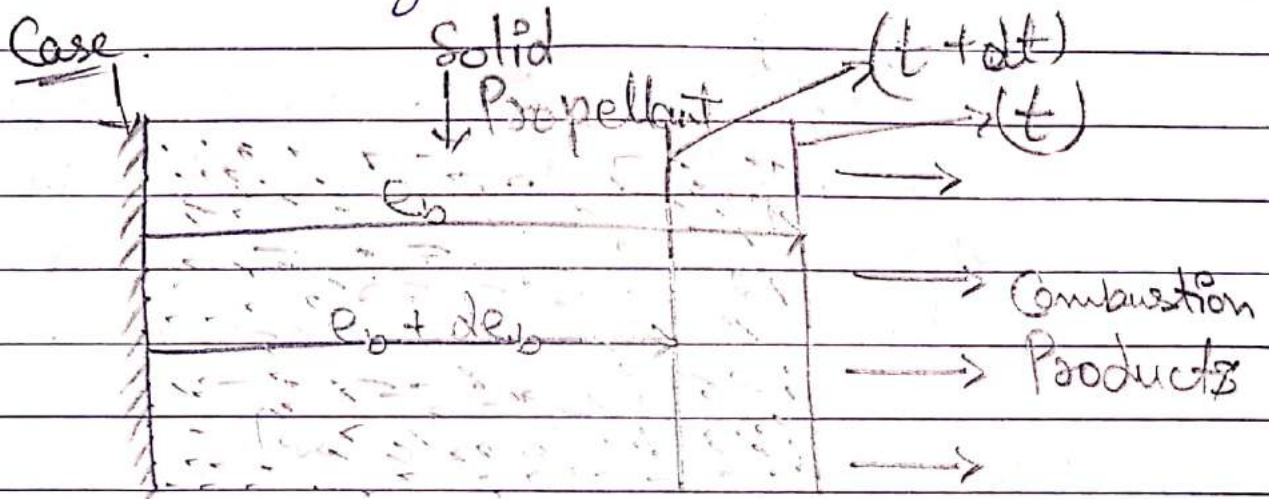 Case
Solid
Propellant
(t + dt)
(t)
e_b
e_b + de_b
Combustion
Products